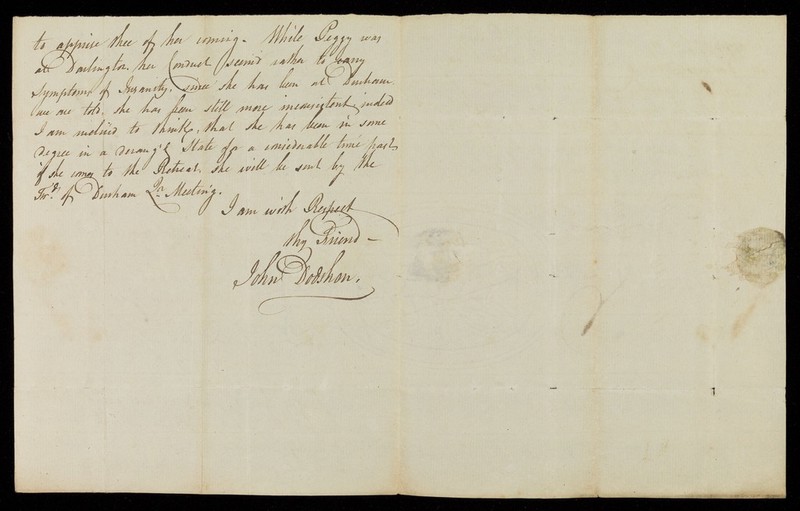 to apprise thee of her coming. While Peggy was
at Darlington her Conduct seem'd rather to bany
Symptoms of Insanity, since she has been at Durham
we are told, she has been still more inconsistent, indeed
I am inclin'd to think, that she has been in some
degree in a derang'd State for a considerable time past
if she comes to the Retreat, she will be sent by the
Frds of Durham Qr. Meeting.
I am with Respect
thy Friend -
John Dodshon.